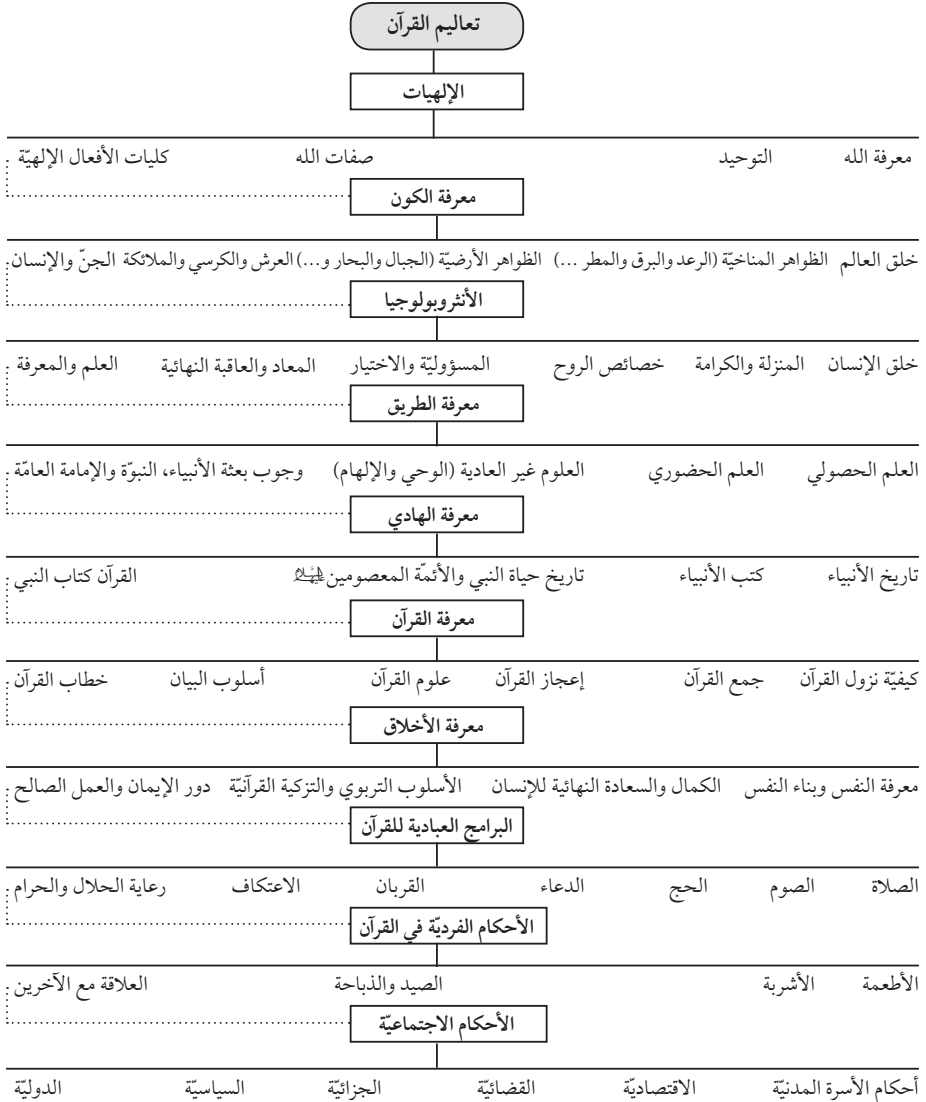 تعاليم القرآن
الإلهيات
معرفة الله التوحيد صفات الله كليات الأفعال الإلهيّة
معرفة الكون
خلق العالم الظواهر المناخيّة (الرعد والبرق والمطر ...) الظواهر الأرضيّة (الجبال والبحار و...) العرش والكرسي والملائكة الجنّ والإنسان
الأنثروبولوجيا
خلق الإنسان المنزلة والكرامة خصائص الروح المسؤوليّة والاختيار المعاد والعاقبة النهائية العلم والمعرفة
معرفة الطريق
العلم الحصولي العلم الحضوري العلوم غير العادية (الوحي والإلهام) وجوب بعثة الأنبياء، النبوّة والإمامة العامّة
معرفة الهادي
تاريخ الأنبياء كتب الأنبياء تاريخ حياة النبي والأئمّة المعصومين القرآن كتاب النبي
معرفة القرآن
كيفيّة نزول القرآن جمع القرآن إعجاز القرآن علوم القرآن أسلوب البيان خطاب القرآن
معرفة الأخلاق
معرفة النفس وبناء النفس الكمال والسعادة النهائية للإنسان الأسلوب التربوي والتزكية القرآنيّة دور الإيمان والعمل الصالح
البرامج العبادية للقرآن
الصلاة الصوم الحج الدعاء القربان الاعتكاف رعاية الحلال والحرام
الأحكام الفرديّة في القرآن
الأطعمة الأشربة الصيد والذباحة العلاقة مع الآخرين
الأحكام الاجتماعيّة
أحكام الأسرة المدنيّة الاقتصاديّة القضائيّة الجزائيّة السياسيّة الدوليّة